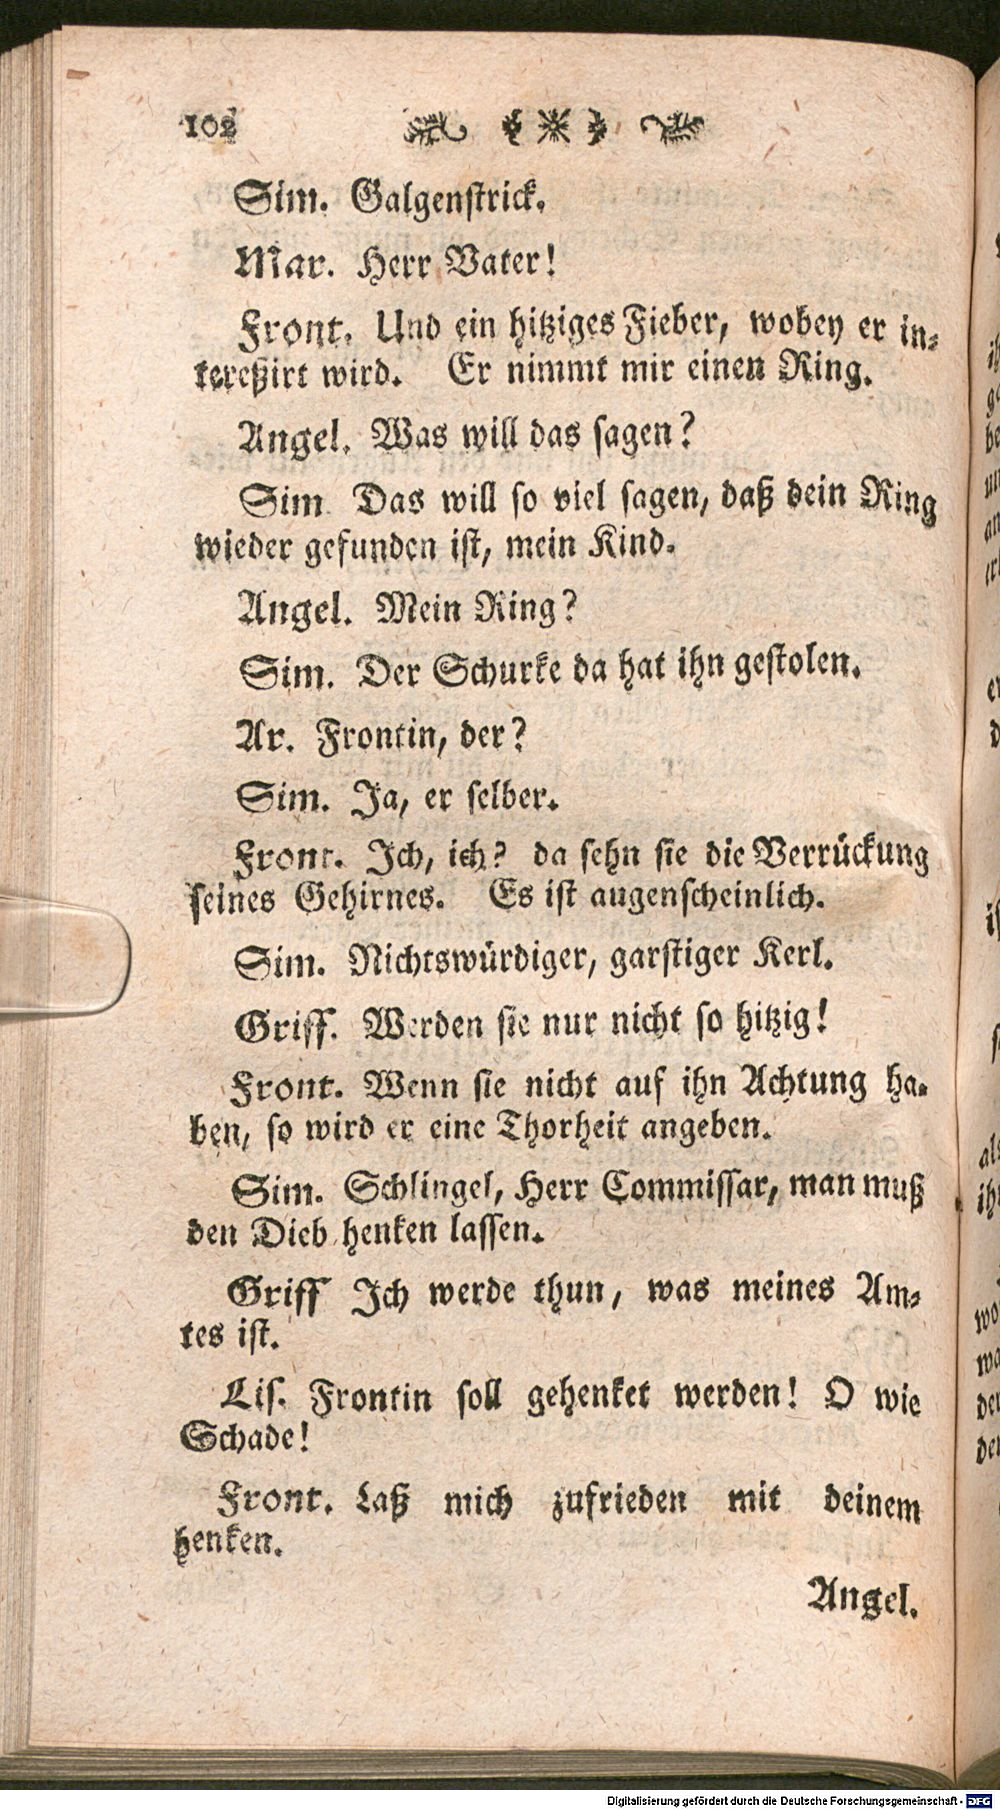 102
Sim. Galgenstrick.
Mar. Herr Vater!
Front. Und ein hitziges Fieber, wobey er in-
tereßirt wird. Er nimmt mir einen Ring.
Angel. Was will das sagen?
Sim. Das will so viel sagen, daß dein Ring
wieder gefunden ist, mein Kind.
Angel. Mein Ring?
Sim. Der Schurke da hat ihn gestolen.
Ar. Frontin, der?
Sim. Ja, er selber.
Front. Ich, ich? da sehn sie die Verrückung
seines Gehirnes. Es ist augenscheinlich.
Sim. Nichtswürdiger, garstiger Kerl.
Griff. Werden sie nur nicht so hitzig!
Front. Wenn sie nicht auf ihn Achtung ha-
ben, so wird er eine Thorheit angeben.
Sim. Schlingel, Herr Commissar, man muß
den Dieb henken lassen.
Griff Ich werde thun, was meines Am-
tes ist.
Lis. Frontin soll gehenket werden! O wie
Schade!
Front. Laß mich zufrieden mit deinem
henken.
Angel.
Digitalisierung gefördert durch die Deutsche Forschungsgemeinschaft - DFG